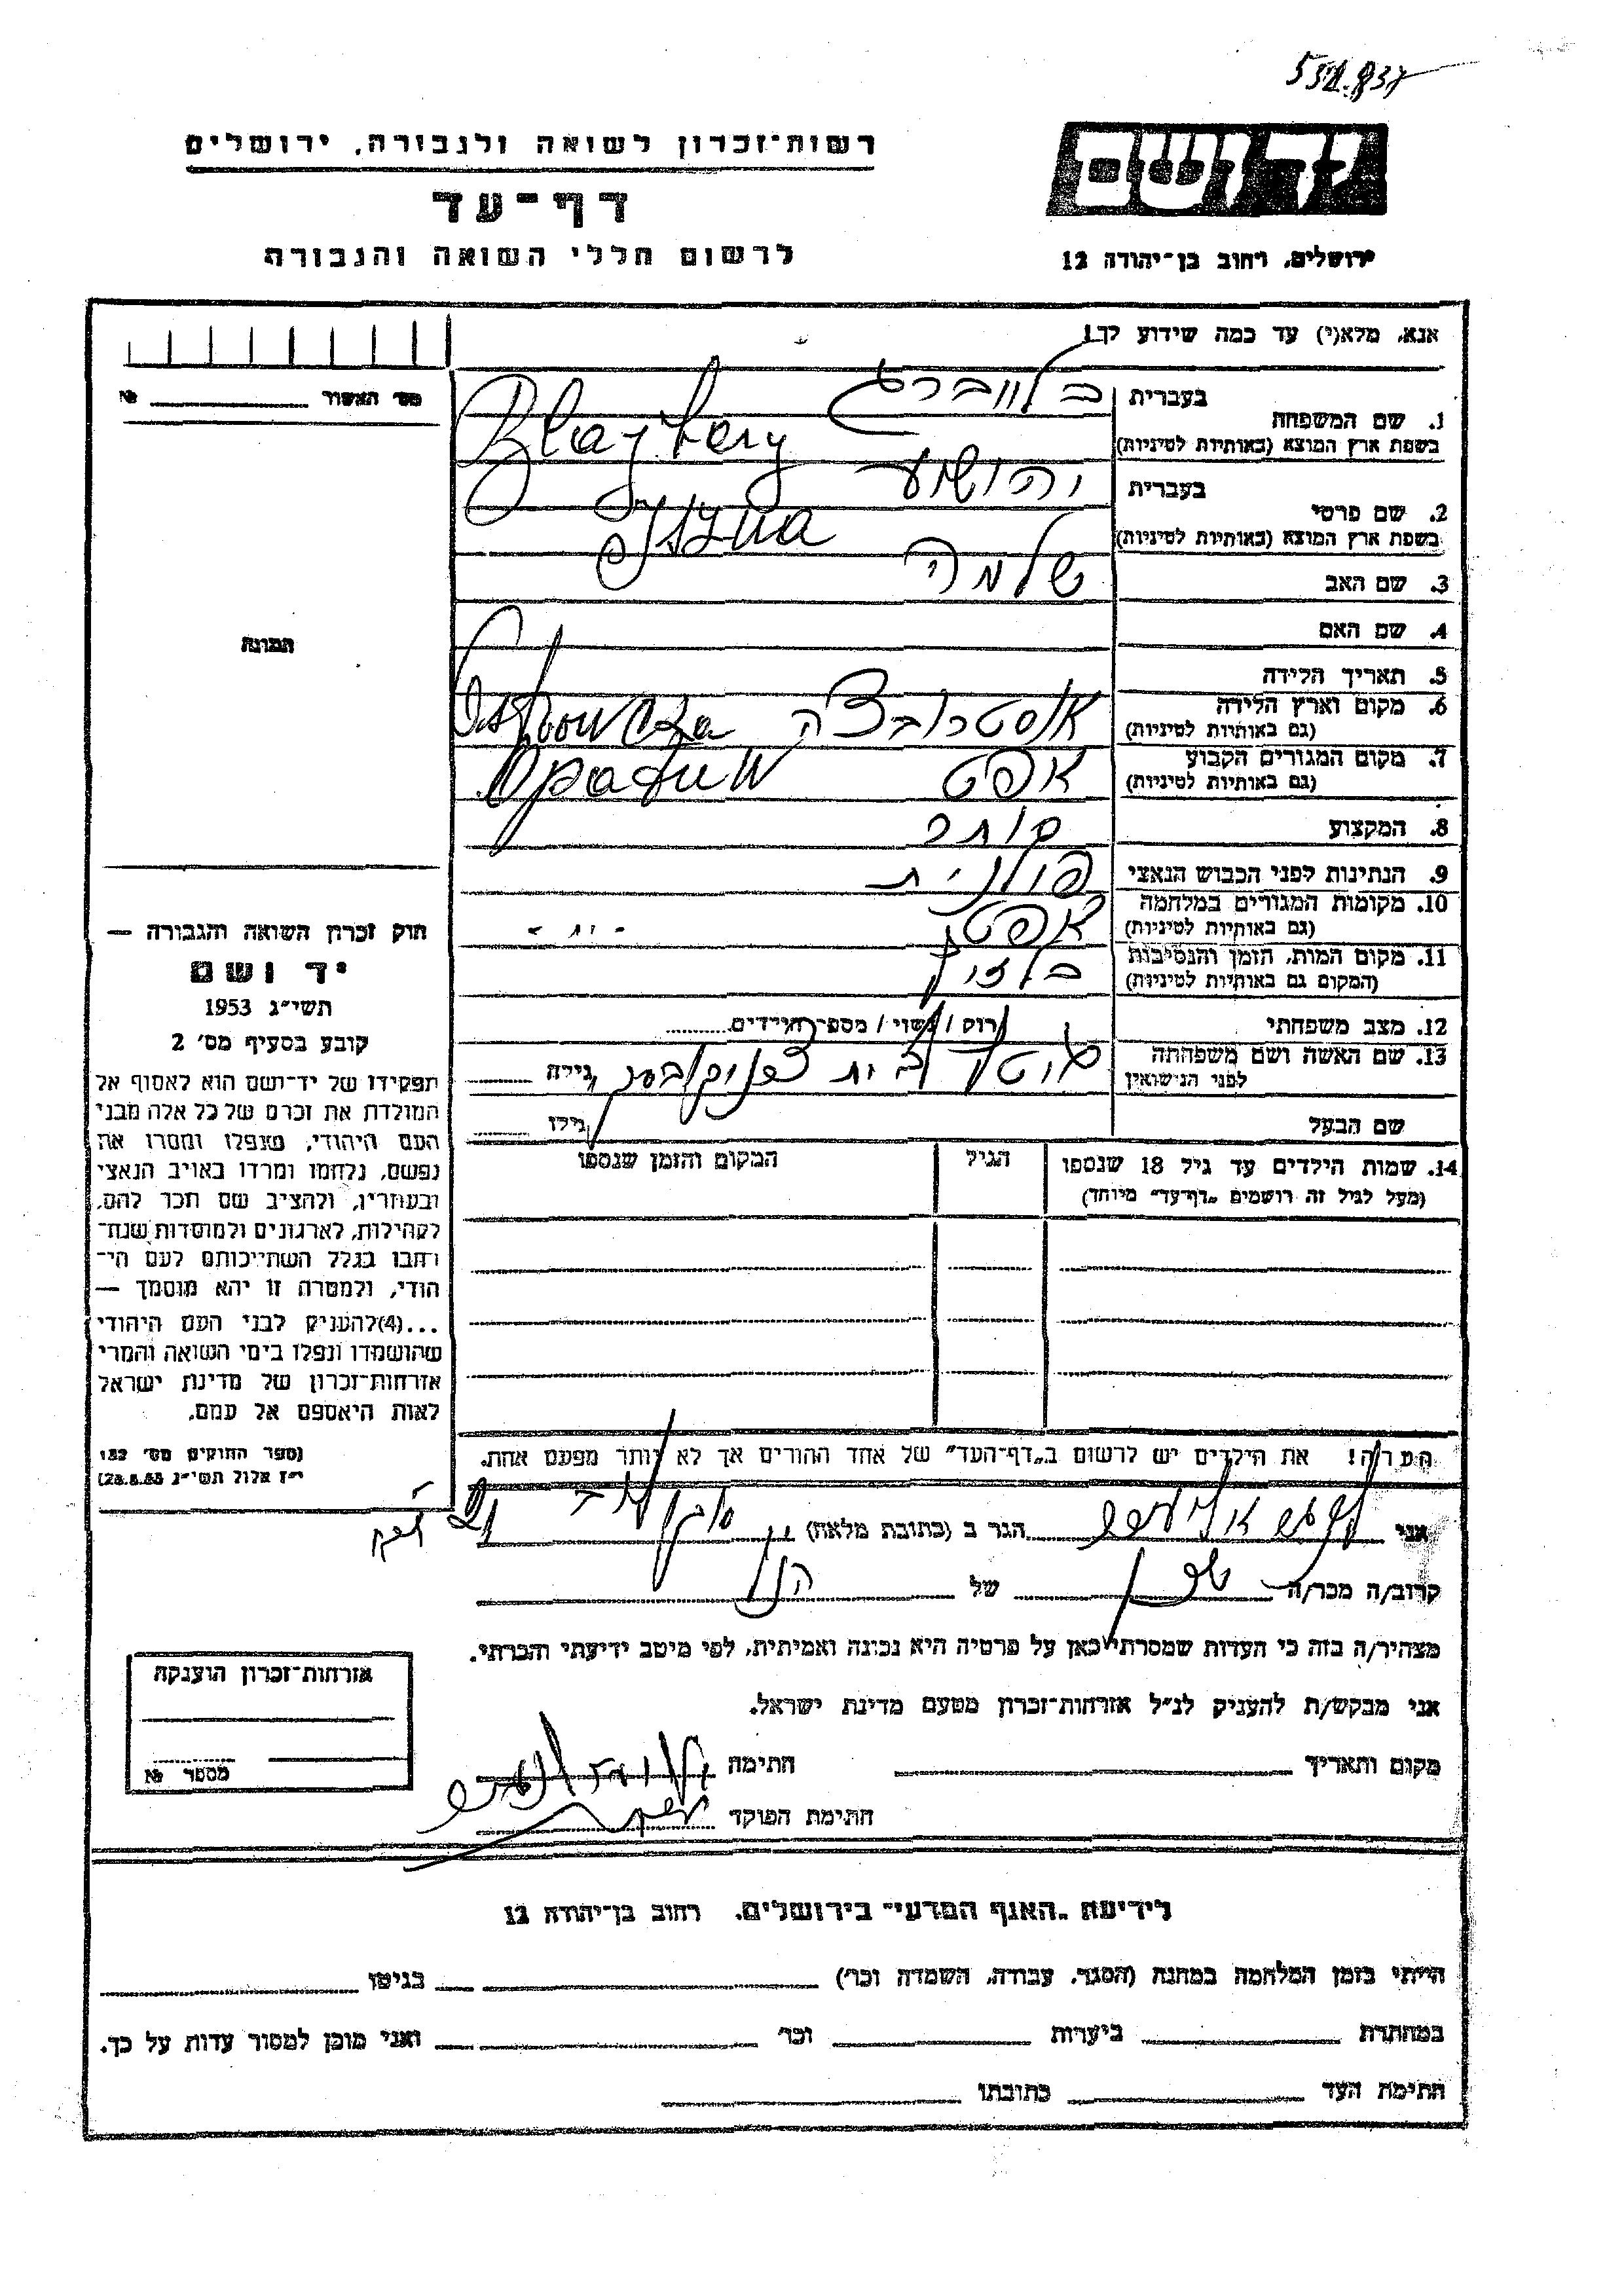 רשות־זכרון לשואה ולגבורה, ירושלים
דף־עד
לרשום חללי השואה והגבורה
יד ושם
ירושלים, רחוב בן־יהודה 12
אנא, מלא(י) עד כמה שידוע לך!
מס׳ האשור № 
1. שם המשפחה
בעברית
בשפת ארץ המוצא (באותיות לטיניות)
2. שם פרטי
בעברית יהושע
בשפת ארץ המוצא (באותיות לטיניות)
3. שם האב שלמה
4. שם האם
5. תאריך הלידה
6. מקום וארץ הלידה
(גם באותיות לטיניות)
7. מקום המגורים הקבוע אפט
(גם באותיות לטיניות)
8. המקצוע סוחר
9. הנתינות לפני הכבוש הנאצי פולנית
10. מקומות המגורים במלחמה אפט
(גם באותיות לטיניות)
11. מקום המות, הזמן והנסיבות
(המקום גם באותיות לטיניות)
12. מצב משפחתי רוק / נשוי / מספר הילדים
13. שם האשה ושם משפחתה
לפני הנישואין
גילה
שם הבעל
גילו
14. שמות הילדים עד גיל 18 שנספו
(מעל לגיל זה רושמים „דף־עד” מיוחד)
הגיל
המקום והזמן שנספו
הערה! את הילדים יש לרשום ב„דף־העד” של אחד ההורים אך לא יותר מפעם אחת.
התמונה
חוק זכרון השואה והגבורה —
יד ושם
תשי״ג 1953
קובע בסעיף מס׳ 2
תפקידו של יד־ושם הוא לאסוף אל
המולדת את זכרם של כל אלה מבני
העם היהודי, שנפלו ומסרו את
נפשם, נלחמו ומרדו באויב הנאצי
ובעוזריו, ולהציב שם וזכר להם,
לקהילות, לארגונים ולמוסדות שנח־
רחבו בגלל השתייכותם לעם הי־
הודי, ולמטרה זו יהא מוסמך —
...(4)להעניק לבני העם היהודי
שהושמדו ונפלו בימי השואה והמרי
אזרחות־זכרון של מדינת ישראל
לאות היאספם אל עמם.
(ספר החוקים מס׳ 132
י״ז אלול תשי״ג 28.8.53)
אני
הגר ב (כתובת מלאה)
קרוב/ה מכר/ה
של
מצהיר/ה בזה כי העדות שמסרתי כאן על פרטיה היא נכונה ואמיתית, לפי מיטב ידיעתי והכרתי.
אני מבקש/ת להעניק לנ״ל אזרחות־זכרון מטעם מדינת ישראל.
מקום ותאריך
חתימה
חתימת הפוקד
אזרחות־זכרון הוענקה
מספר №
לידיעת „האגף המדעי” בירושלים, רחוב בן־יהודה 12
הייתי בזמן המלחמה במחנה (הסגר, עבודה, השמדה וכו׳)
בגיטו
במחתרת
ביערות
וכו׳
ואני מוכן למסור עדות על כך.
חתימת העד
כתובתו